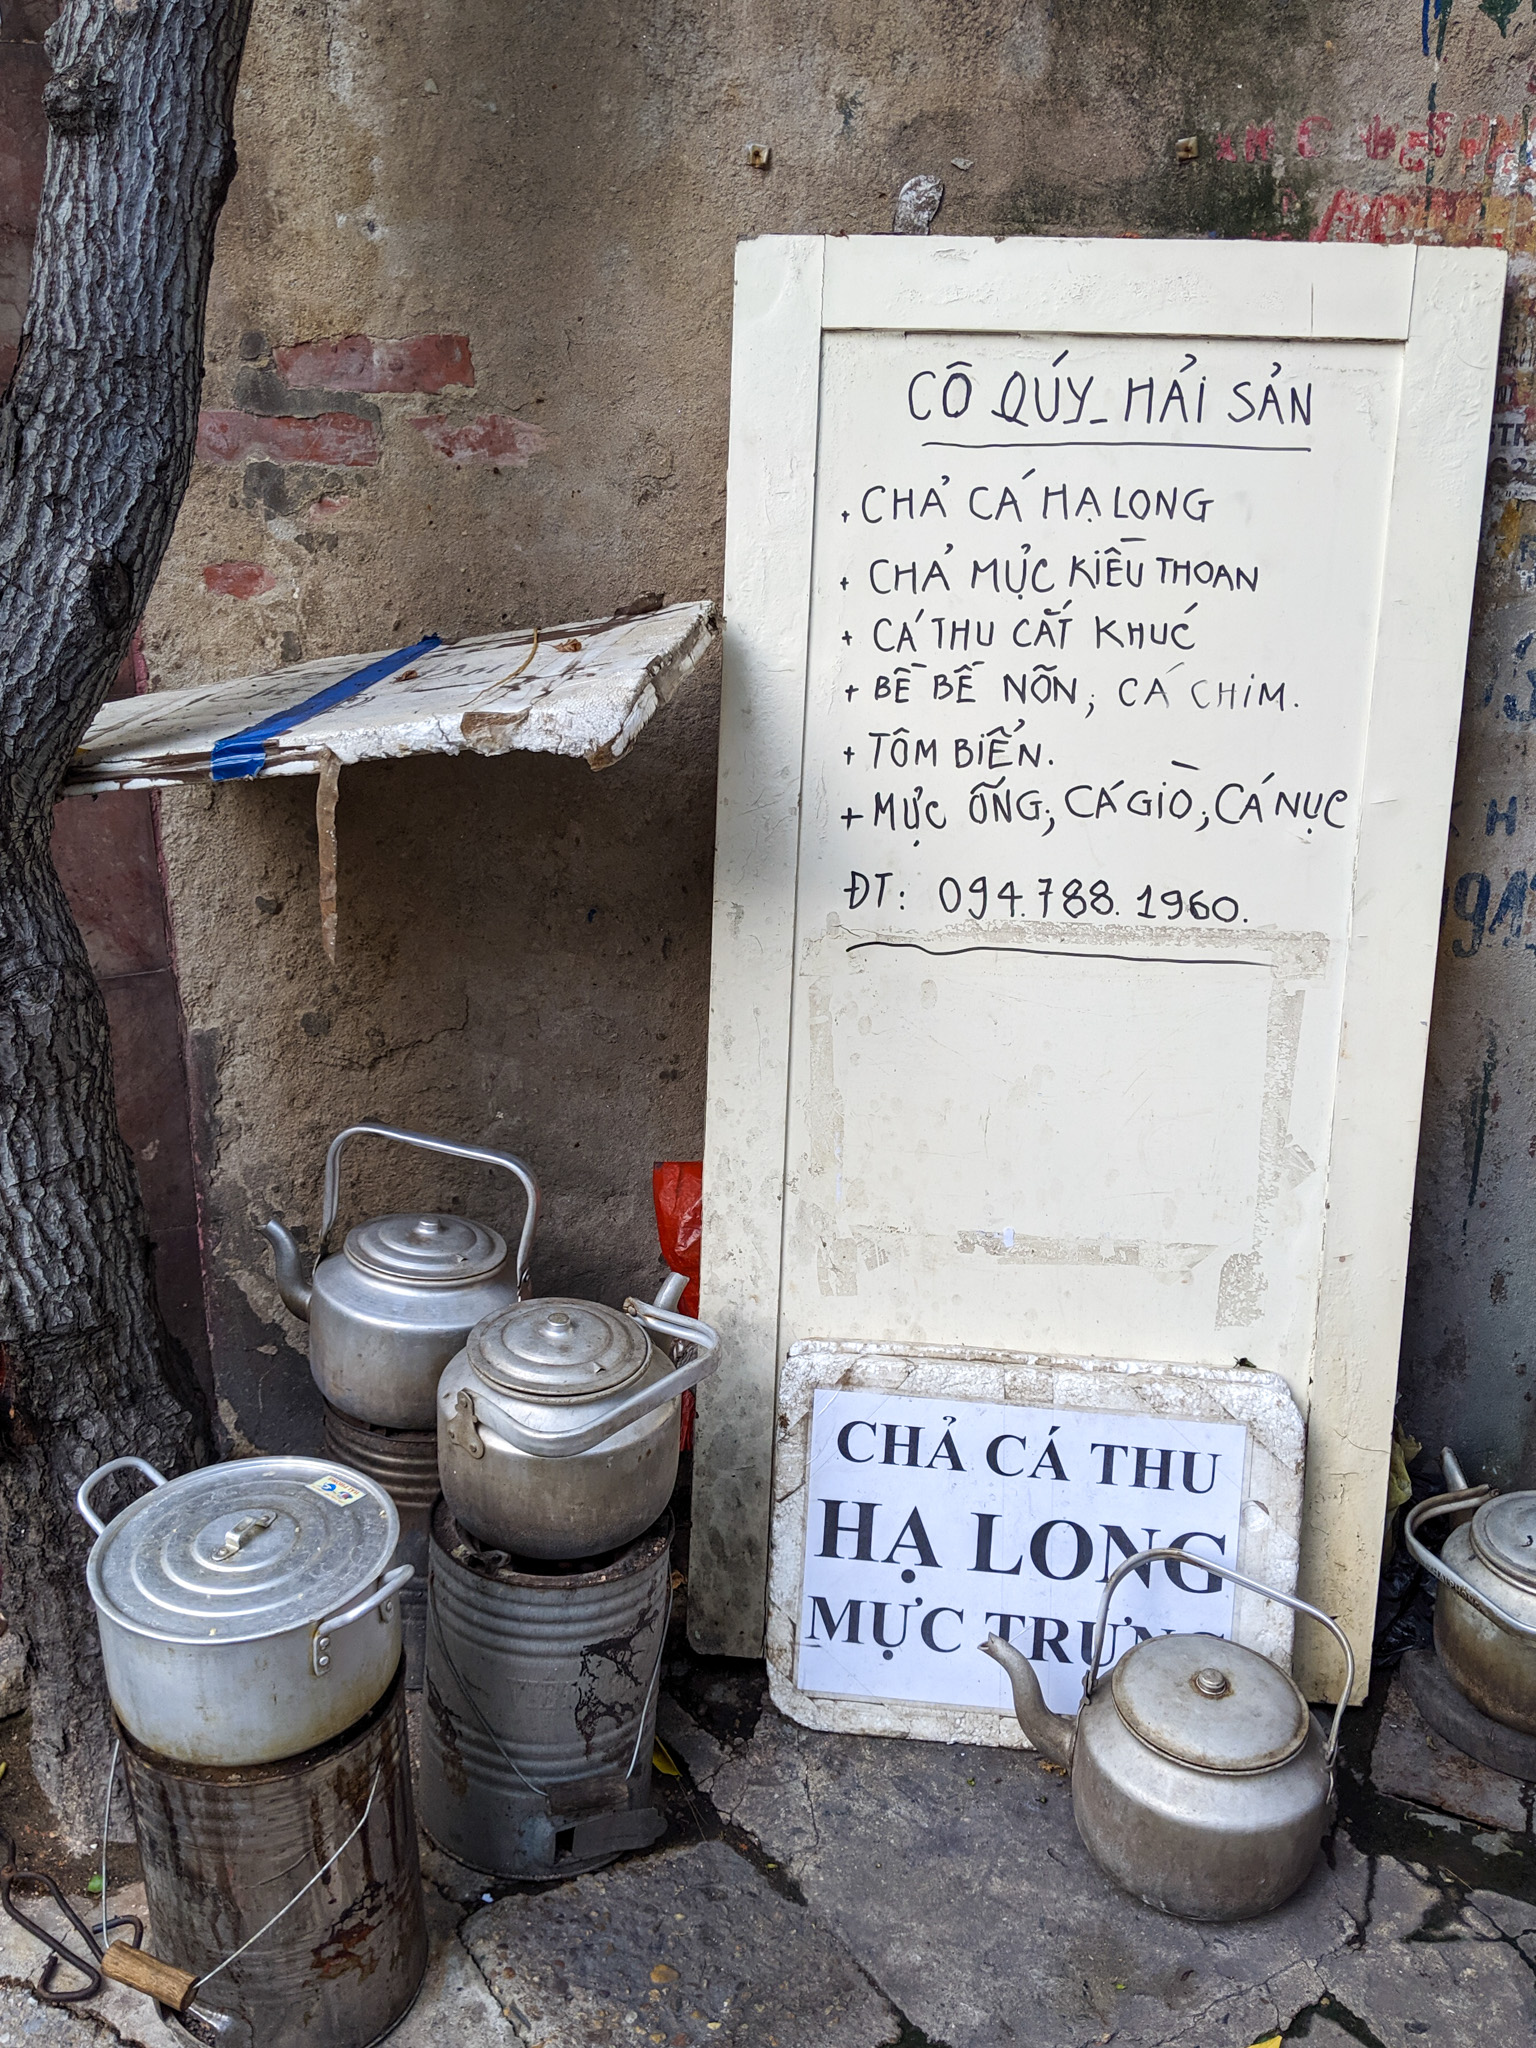 CÔ QÚY_HẢI SẢN
. CHẢ CÁ HẠ LONG
+ CHẢ MỰC KIỀU THOAN
+ CÁ THU CẮT KHÚC
+ BỀ BẾ NÕN; CÁ CHIM.
+ TÔM BIỂN.
+ MỰC ỐNG; CÁ GIÒ; CÁ NỤC
ĐT: 094.788.1960.
CHẢ CÁ THU
HẠ LONG
MỰC TRỨNG